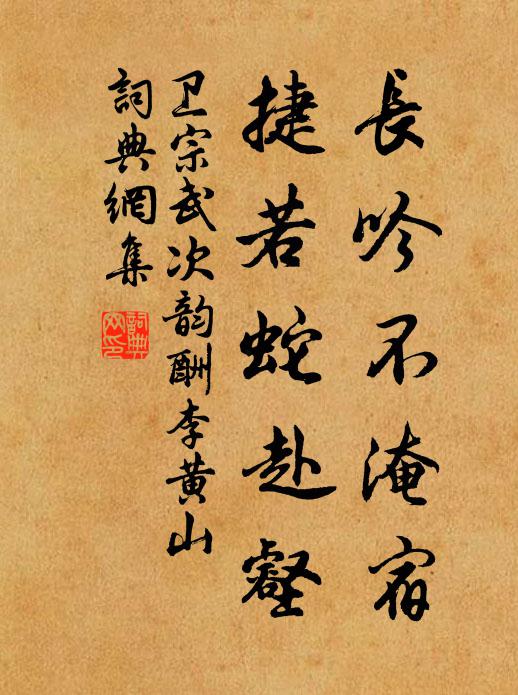 長吟不淹宿
捷若蛇赴壑
卫宗武次韵酬李黄山
詞典網集